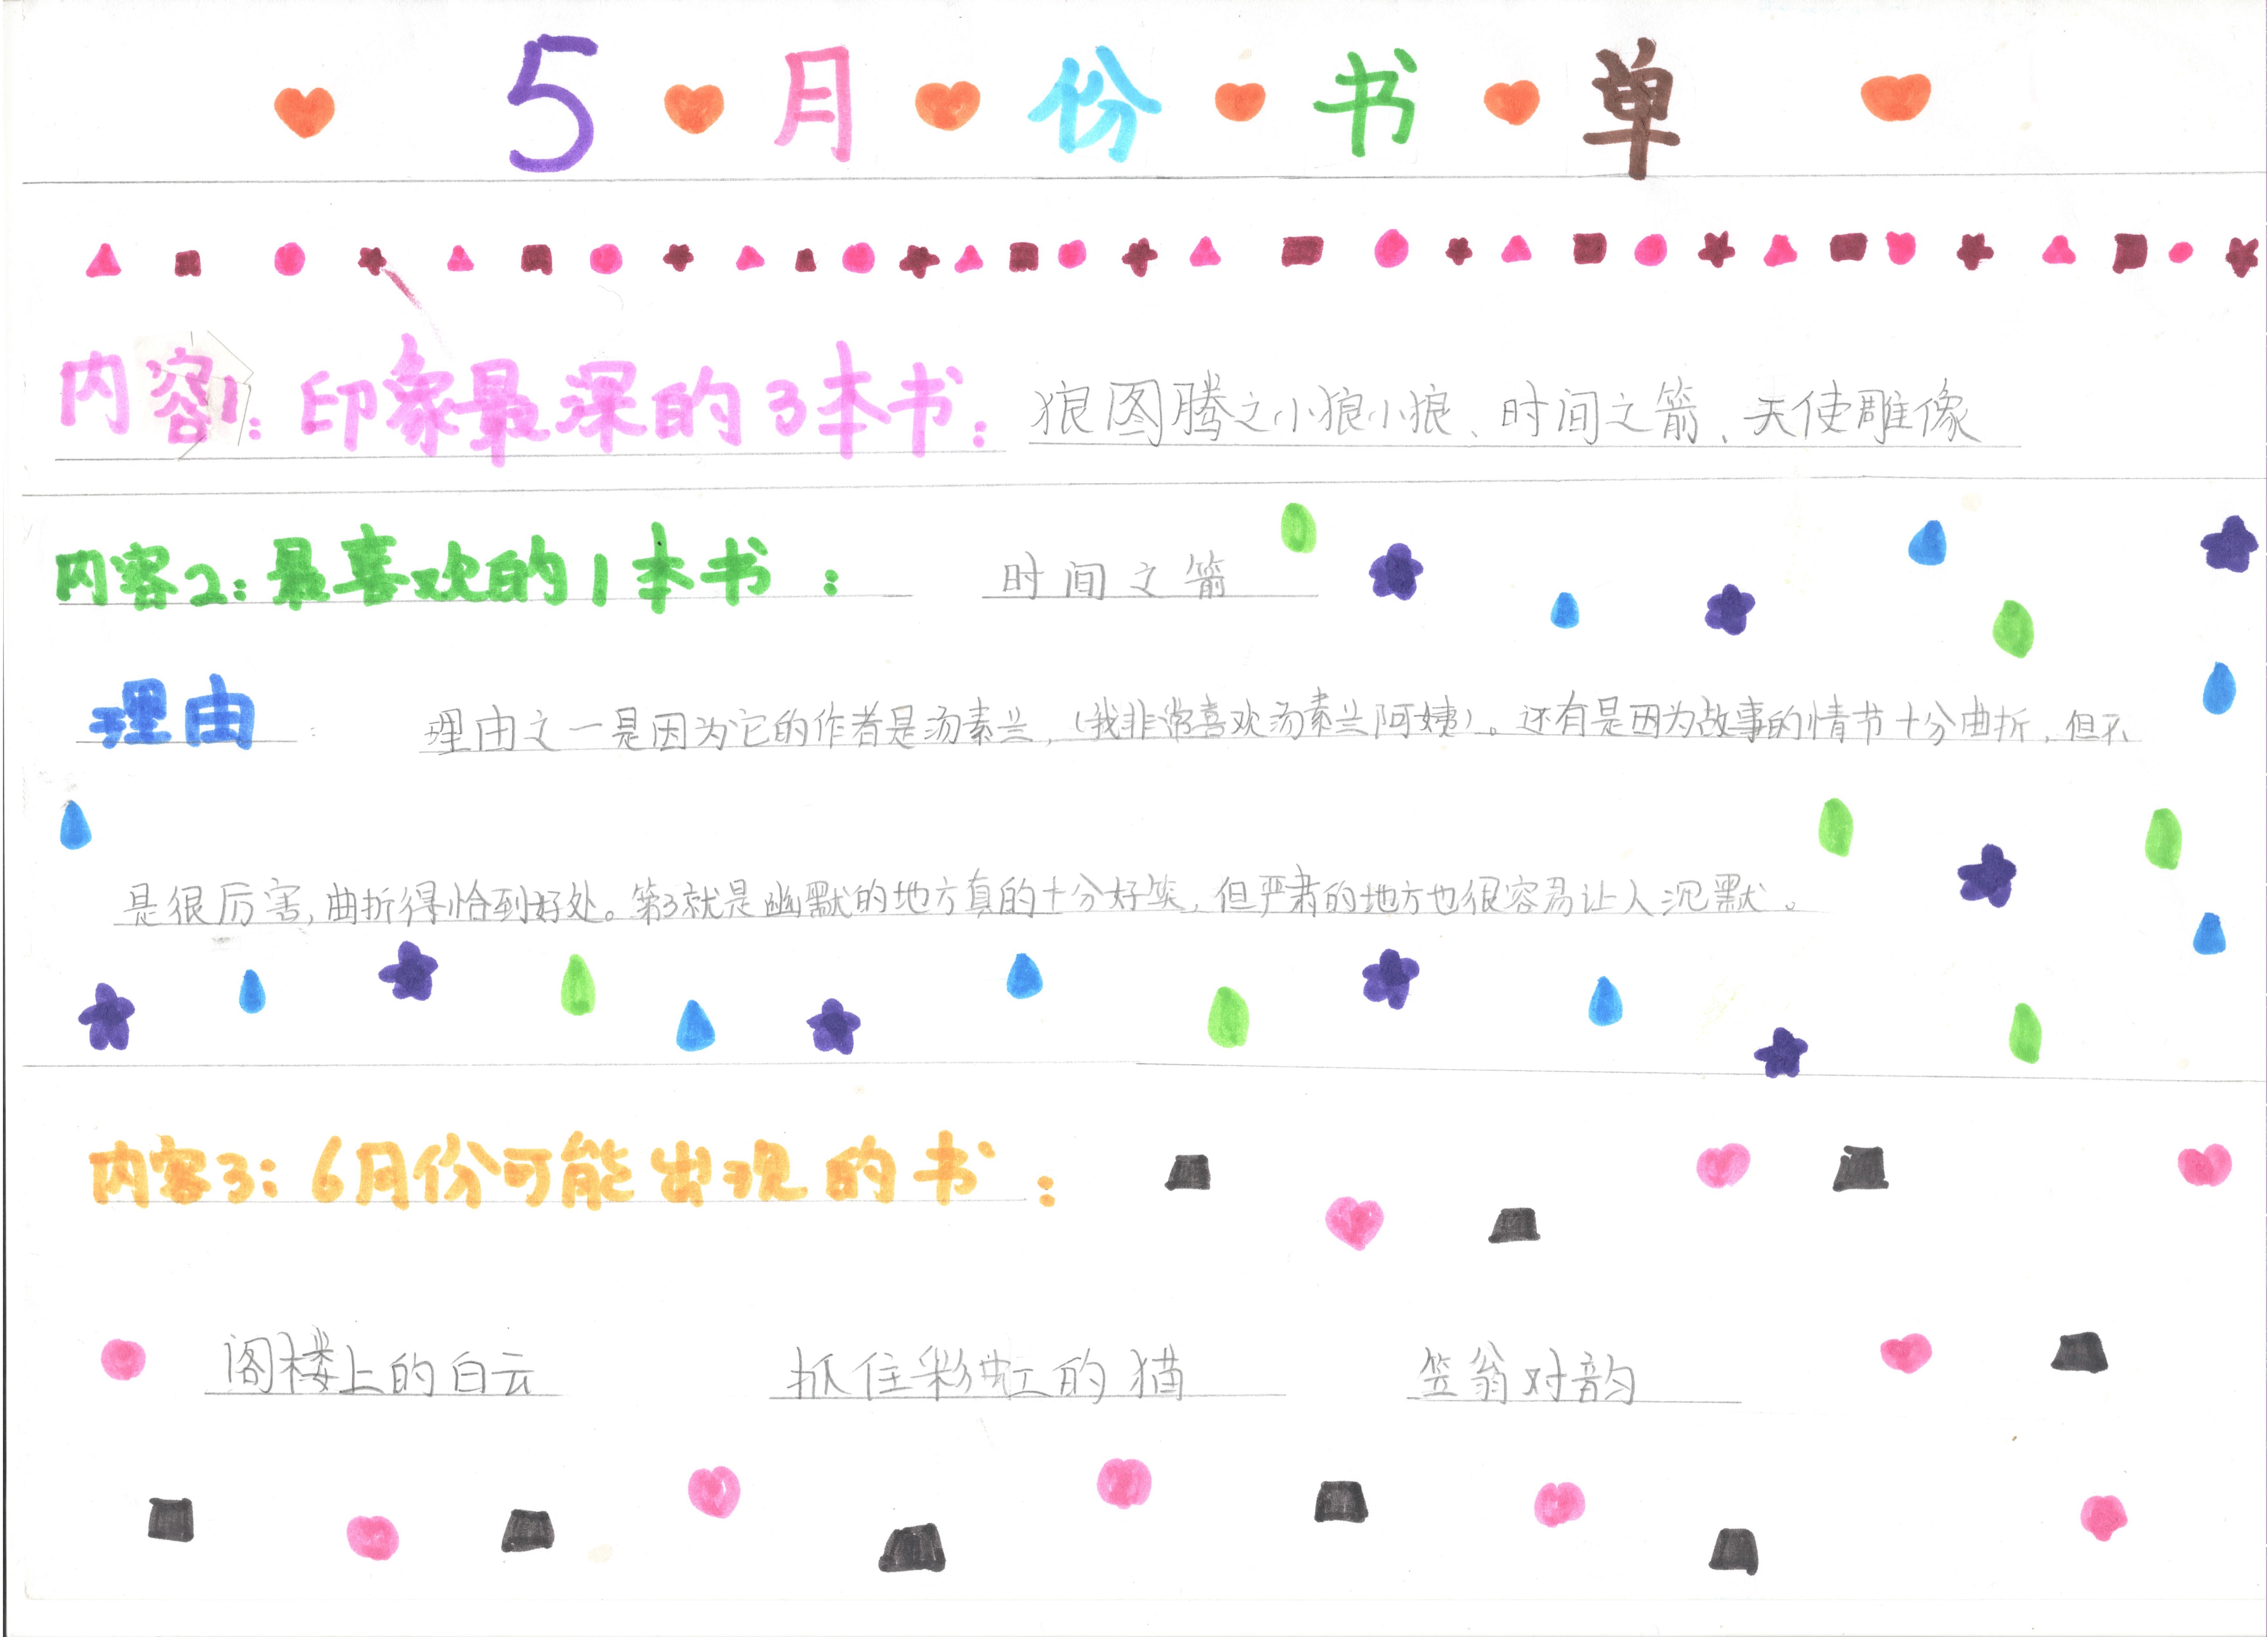 5月份书单
内容1：印象最深的3本书：狼图腾之小狼小狼、时间之箭、天使雕像
内容2：最喜欢的1本书：时间之箭
理由：理由之一是因为它的作者是汤素兰，（我非常喜欢汤素兰阿姨）。还有是因为故事的情节十分曲折，但不
是很厉害，曲折得恰到好处。第3就是幽默的地方真的十分好笑，但严肃的地方也很容易让人沉默。
内容3：6月份可能出现的书：
阁楼上的白云 抓住彩虹的猫 笠翁对韵